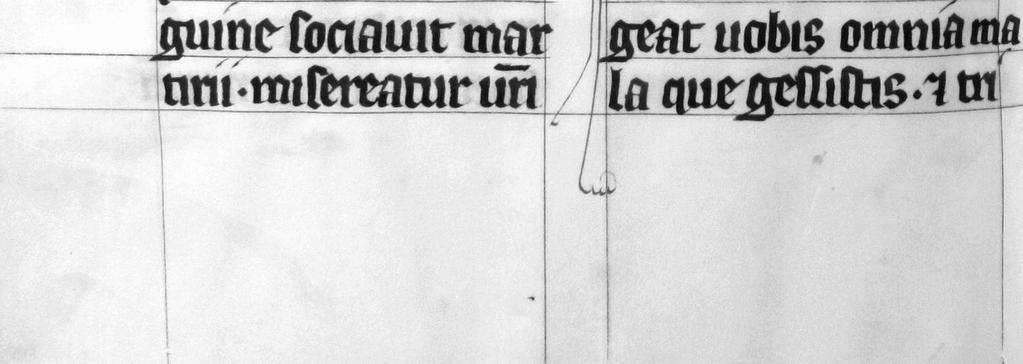 guine sociauit mar
tirii · misereatur ur̅i
geat uobis omnia ma
la que gessistis · ⁊ tri